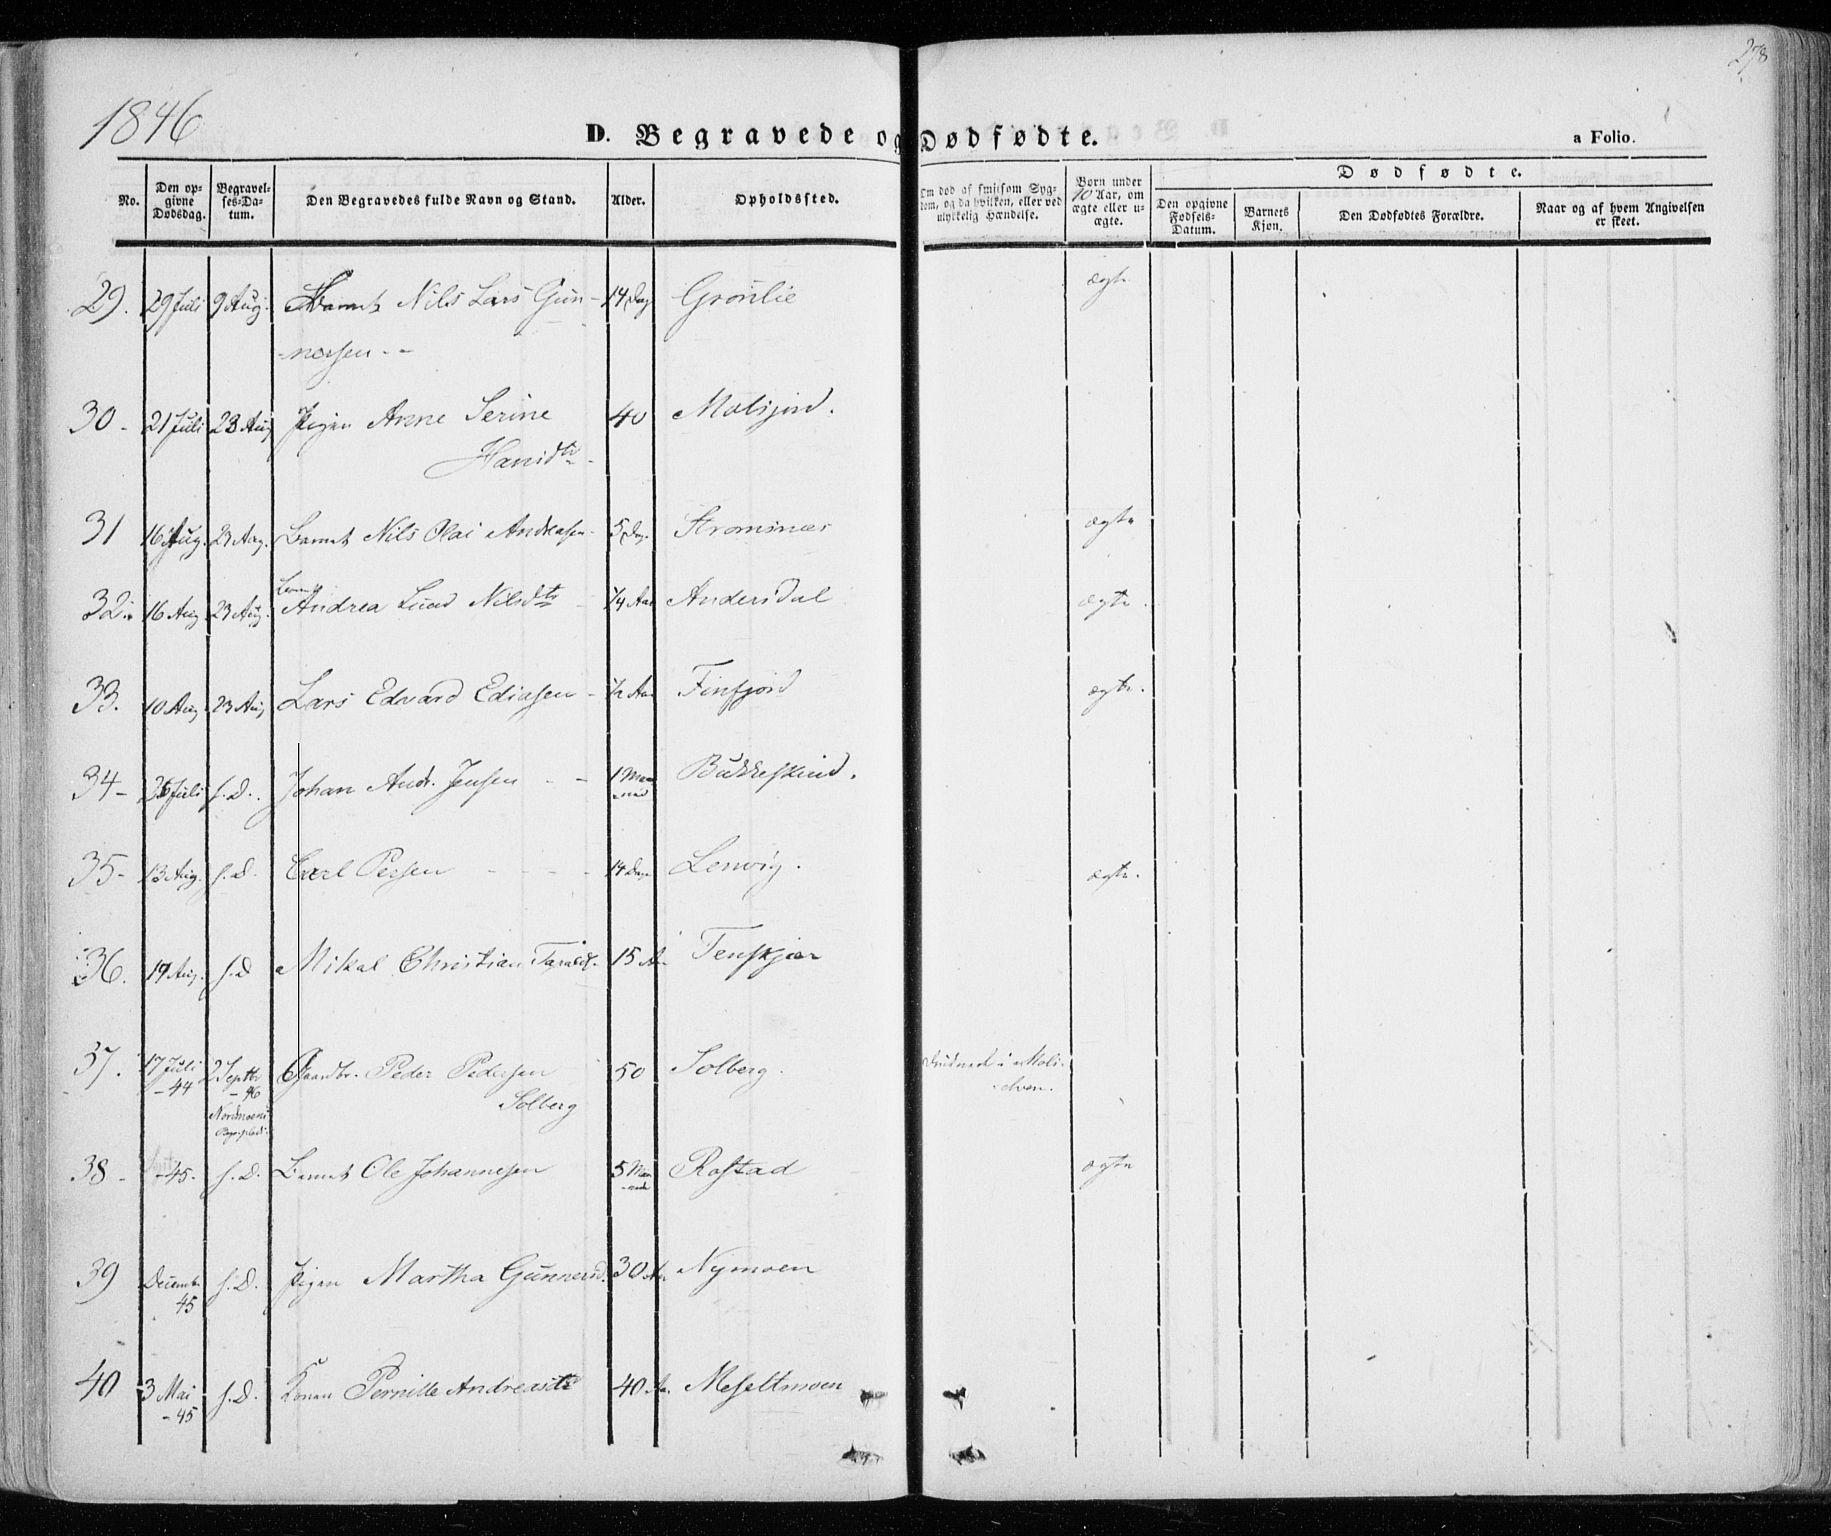 278
1846
D. Begravede og Dødfødte.
a Folio.
No.
Den op-
givne
Dødsdag.
Begravel-
ses-Da-
tum.
Den Begravedes fulde Navn og Stand.
Alder.
Opholdssted.
Om død af smitsom Syg-
dom, og da hvilken, eller ved
ulykkelig Hændelse.
Børn under
10 Aar, om
ægte eller u-
ægte.
Dødfødte.
Den opgivne
Fødsels-
Datum.
Barnets
Kjøn.
Den Dødfødtes Forældre.
Naar og af hvem Angivelsen
er skeet.
29. 29 Juli 9 Aug. Barnet Nils Lars Gun- 14 Dag Grønlie ægte
-nersen - -
30 - 21 Juli 23 Aug Pigen Anne Serine 40
Hansdtr -
31 16 Aug. 23 Aug. Barnet Nils Olai Andreasen - 5 Dag Strømsnes ægte
Barnet
32. 16 Aug 23 Aug. Andrea Nilsdtr 1/4 Aar Andersdal ægte.
33. 10 Aug 23 Aug Lars Edvard Ediasen - 1/2 Aar Finfjord ægte.
34 - Juli s. D. Johan Andr. Jensen - - 1 Maa Bukkeskind.
-ned
35 - 13 Aug. s. D. Carl Persen - - - - 14 Dage Lenvig. ægte.
36. Aug. s. D Mikal Christian 15 Aar
37. 17 Juli 2 Septbr Gaardbr. Peder Pedersen 50 Solberg. Druknede i
- 44 - 46 Solberg - elven.
Nordmoens
38 - - 45 - s. D. Barnet Ole Johannesen 5 Maa Rostad ægte
-nede
39 Decemb. s. D. Pigen Martha Gunnersd. 30 Aar Nymoen
45
40 3 Mai s. D. Konen Pernille Andreasdtr 40 Aar. Meseltmoen
- 45